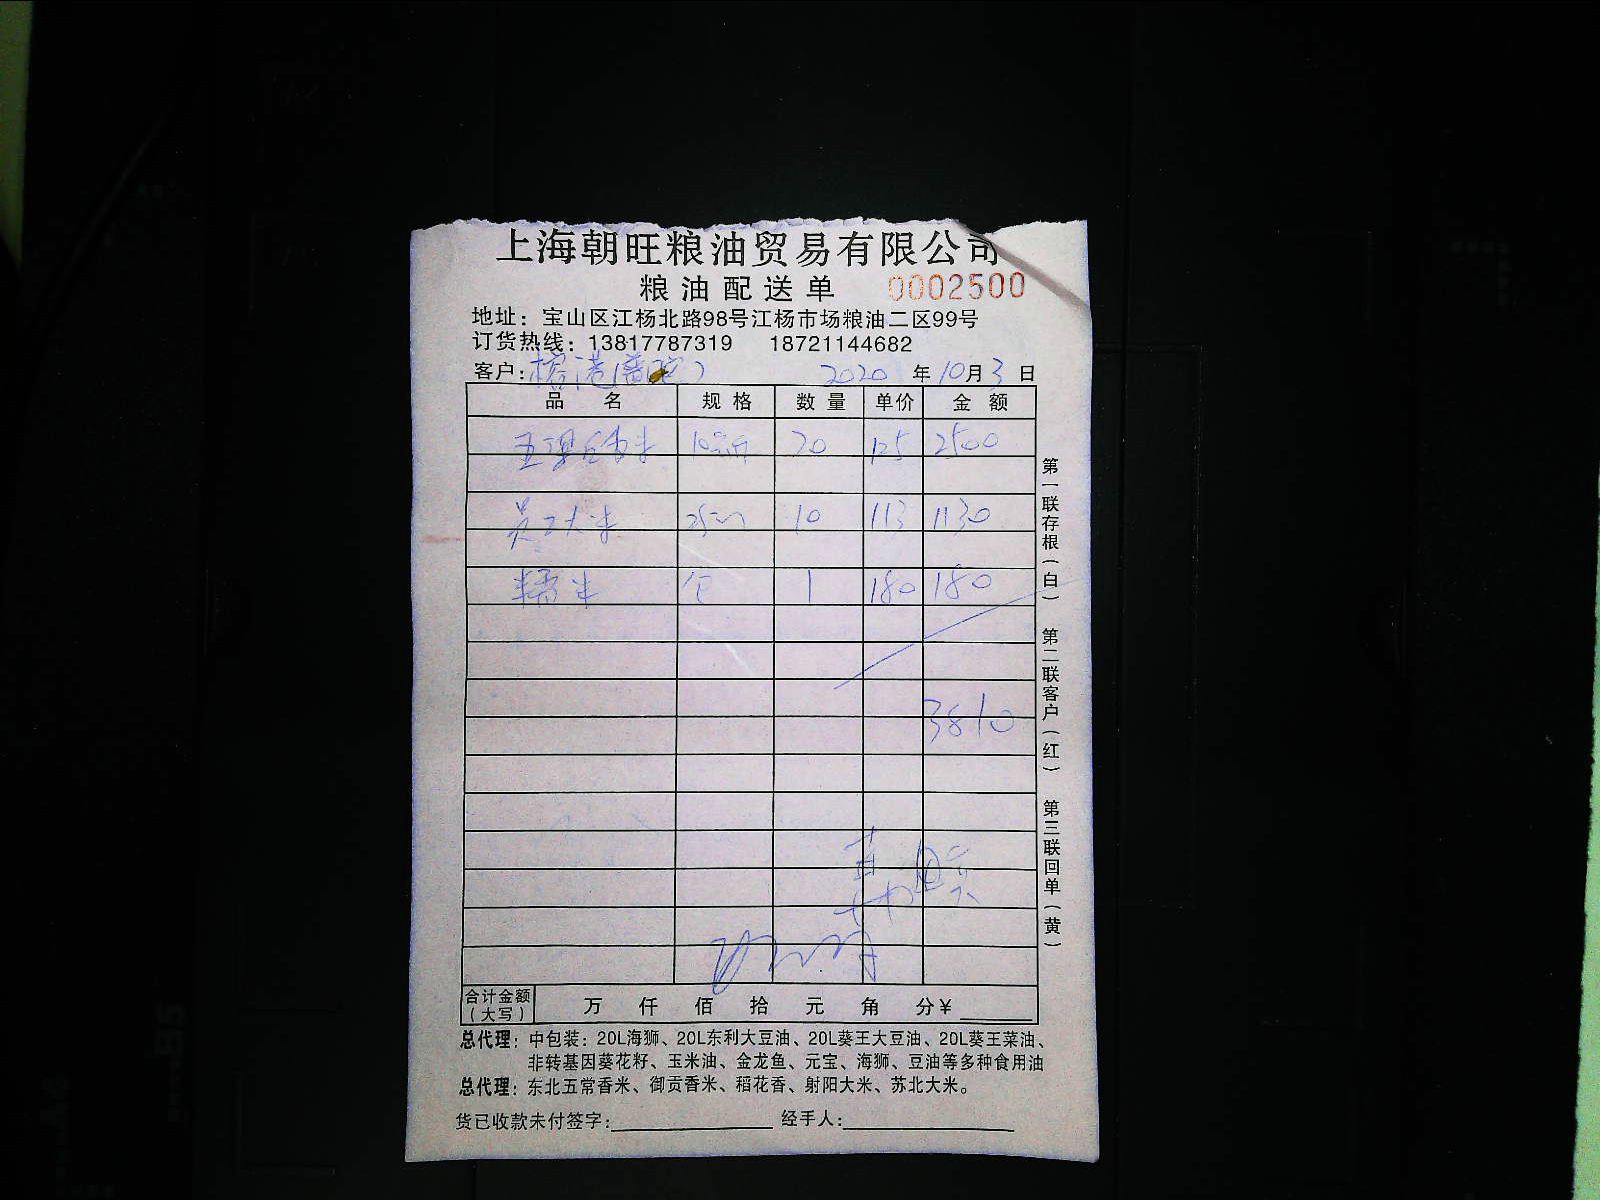 上海朝旺粮油贸易有限公司
粮油配送单 0002500
地址：宝山区江杨北路98号江杨市场粮油二区99号
订货热线：13817787319 18721144682
客户： 2020 年 10月3日
品 名 规 格 数 量 单价 金 额
20 125 2500
员工大米 10 113 1130
糯米 包 1 180 180
3810
合计金额（大写） 万 仟 佰 拾 元 角 分¥
总代理：中包装：20L海狮、20L东利大豆油、20L葵王大豆油、20L葵王菜油、
非转基因葵花籽、玉米油、金龙鱼、元宝、海狮、豆油等多种食用油
总代理：东北五常香米、御贡香米、稻花香、射阳大米、苏北大米。
货已收款未付签字： 经手人：
第一联存根（白） 第二联客户（红） 第三联回单（黄）